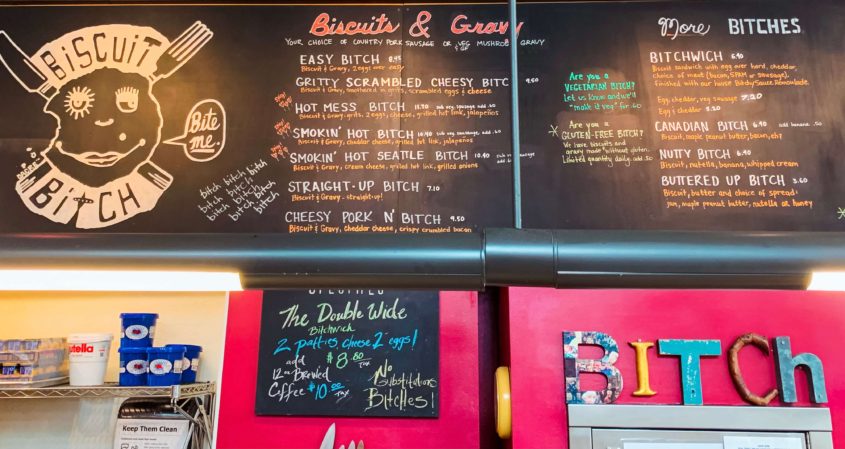 BISCUIT
BITCH
Bite
me.
bitch bitch bitch
bitch bitch bitch
bitch bitch bitch
bitch bitch
Biscuits & Gravy
YOUR CHOICE OF COUNTRY PORK SAUSAGE OR VEG MUSHROOM GRAVY
EASY BITCH 8.95
Biscuit & Gravy, 2 eggs over easy
GRITTY SCRAMBLED CHEESY BITC 9.50
Biscuit & Gravy, smothered in grits, scrambled eggs & cheese
HOT MESS BITCH 11.70 sub veg sausage add .50
Biscuit & Gravy, grits, 2 eggs, cheese, grilled hot link, jalapeños
SMOKIN' HOT BITCH 10.40 sub veg sausage add .50
Biscuit & Gravy, cheddar cheese, grilled hot link, jalapeños
SMOKIN' HOT SEATTLE BITCH 10.40 sub sausage add .50
Biscuit & Gravy, cream cheese, grilled hot link, grilled onions
STRAIGHT-UP BITCH 7.10
Biscuit & Gravy - straight-up!
CHEESY PORK N' BITCH 9.50
Biscuit & Gravy, cheddar cheese, crispy crumbled bacon
Are you a
VEGETARIAN BITCH?
Let us know and we'll
"make it veg" for .50
Are you a
GLUTEN-FREE BITCH?
We have biscuits and
gravy made without gluten.
Limited quantity daily. add .50
More BITCHES
BITCHWICH 6.90
Biscuit sandwich with egg over hard, cheddar,
choice of meat (bacon, SPAM or sausage),
finished with our house BitchySauce Remoulade.
Egg, cheddar, veg sausage 7.20
Egg & cheddar 5.20
CANADIAN BITCH 6.90 add banana .50
Biscuit, maple peanut butter, bacon, eh?
NUTTY BITCH 6.90
Biscuit, nutella, banana, whipped cream
BUTTERED UP BITCH 3.60
Biscuit, butter and choice of spread:
jam, maple peanut butter, nutella or honey
The Double Wide
Bitchwich
2 patties cheese 2 eggs!
$8.80 +TAX
add
12oz Brewed
Coffee $10.00 +TAX
No
Substitutions
Bitches!
nutella
Keep Them Clean
BITCh